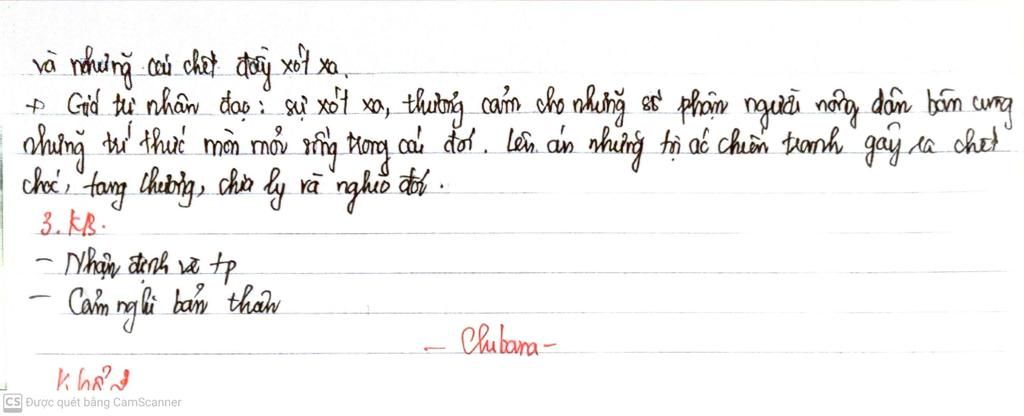 và những cái chết đầy xót xa.
+ Giá trị nhân đạo: sự xót xa, thương cảm cho những số phận người nông dân bần cùng
những trí thức mòn mỏi sống trong cái đói. Lên án những tội ác chiến tranh gây ra chết
chóc, tang thương, chia ly và nghèo đói.
3. KB.
- Nhận định về tp
- Cảm nghĩ bản thân
- Chubara -
Khổ 2
CS Được quét bằng CamScanner